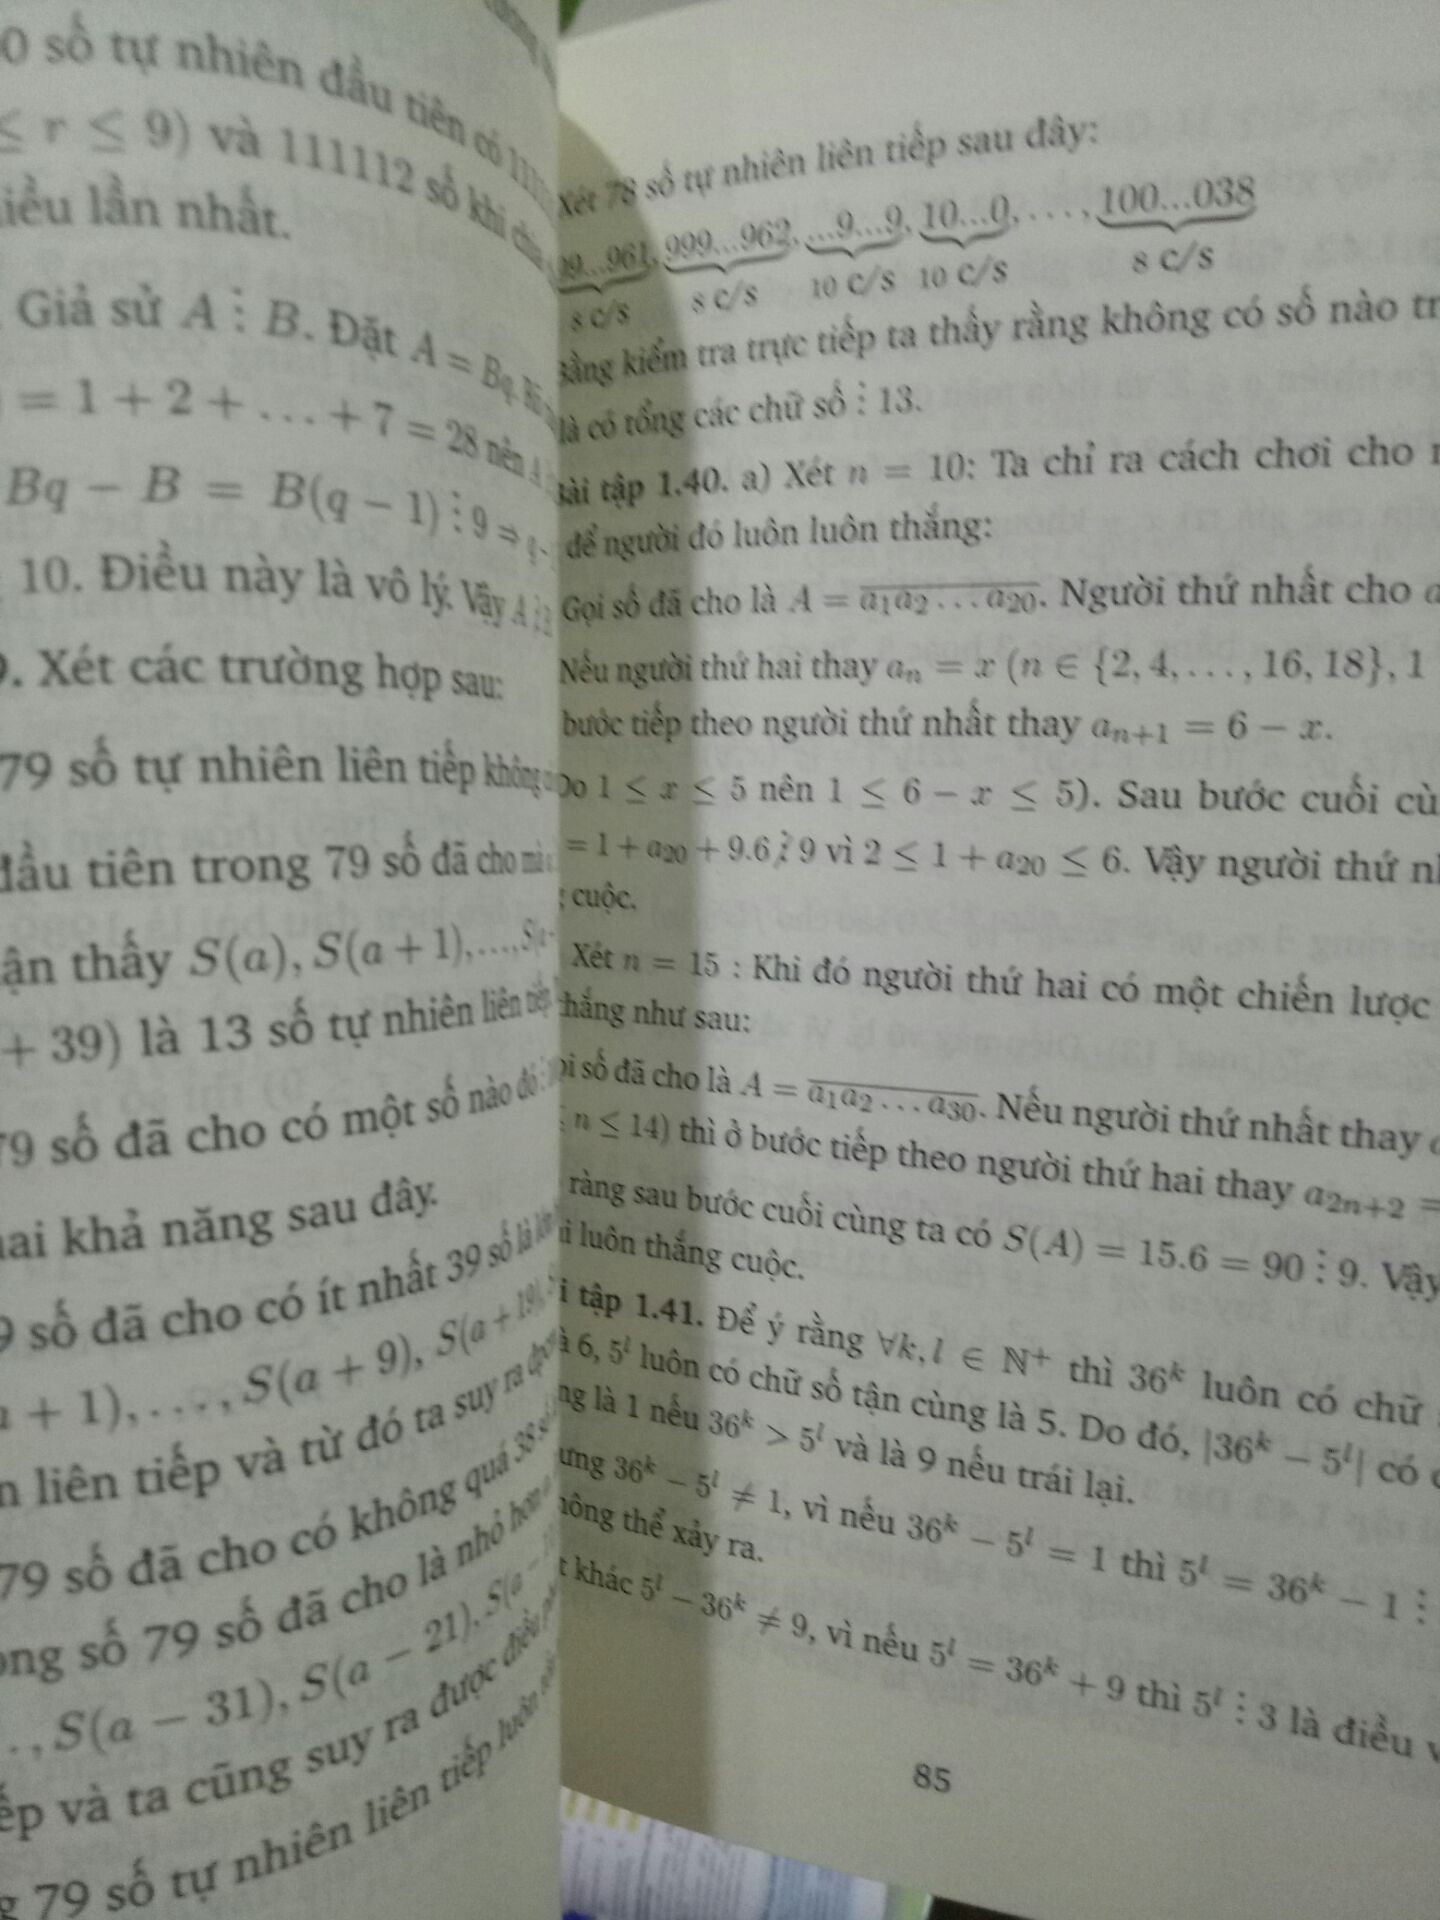 0 số tự nhiên đầu tiên có
≤ r ≤ 9) và 111112 số khi
iều lần nhất.
Giả sử A ⋮ B. Đặt A = Bq.
= 1 + 2 + … + 7 = 28 nên A
Bq − B = B(q − 1) ⋮ 9 ⇒ q −
10. Điều này là vô lý. Vậy A
9. Xét các trường hợp sau:
79 số tự nhiên liên tiếp không
đầu tiên trong 79 số đã cho mà
ận thấy S(a), S(a + 1), …,
+ 39) là 13 số tự nhiên liên tiếp
79 số đã cho có một số nào đó
hai khả năng sau đây.
9 số đã cho có ít nhất 39 số là
a + 1), …, S(a + 9), S(a + 19),
n liên tiếp và từ đó ta suy ra
79 số đã cho có không quá 38 số
ong số 79 số đã cho là nhỏ hơn
…, S(a − 31), S(a − 21), S(a −
ếp và ta cũng suy ra được điều
g 79 số tự nhiên liên tiếp luôn
Xét 78 số tự nhiên liên tiếp sau đây:
99...961, 999...962, ...9...9, 10...0, …, 100...038
8 c/s 8 c/s 10 c/s 10 c/s 8 c/s
Bằng kiểm tra trực tiếp ta thấy rằng không có số nào tr
là có tổng các chữ số ⋮ 13.
Bài tập 1.40. a) Xét n = 10: Ta chỉ ra cách chơi cho
để người đó luôn luôn thắng:
Gọi số đã cho là A = \overline{a₁a₂…a₂₀}. Người thứ nhất cho
Nếu người thứ hai thay aₙ = x (n ∈ {2, 4, …, 16, 18}, 1
bước tiếp theo người thứ nhất thay aₙ₊₁ = 6 − x.
Do 1 ≤ x ≤ 5 nên 1 ≤ 6 − x ≤ 5). Sau bước cuối cù
= 1 + a₂₀ + 9.6 ⋮̸ 9 vì 2 ≤ 1 + a₂₀ ≤ 6. Vậy người thứ nh
g cuộc.
Xét n = 15 : Khi đó người thứ hai có một chiến lược
thắng như sau:
ọi số đã cho là A = \overline{a₁a₂…a₃₀}. Nếu người thứ nhất thay
≤ n ≤ 14) thì ở bước tiếp theo người thứ hai thay a₂ₙ₊₂ =
ràng sau bước cuối cùng ta có S(A) = 15.6 = 90 ⋮ 9. Vậy
i luôn thắng cuộc.
i tập 1.41. Để ý rằng ∀k, l ∈ ℕ⁺ thì 36ᵏ luôn có chữ
à 6, 5ˡ luôn có chữ số tận cùng là 5. Do đó, |36ᵏ − 5ˡ| có
ng là 1 nếu 36ᵏ > 5ˡ và là 9 nếu trái lại.
ưng 36ᵏ − 5ˡ ≠ 1, vì nếu 36ᵏ − 5ˡ = 1 thì 5ˡ = 36ᵏ − 1 ⋮
hông thể xảy ra.
t khác 5ˡ − 36ᵏ ≠ 9, vì nếu 5ˡ = 36ᵏ + 9 thì 5ˡ ⋮ 3 là điều v
85